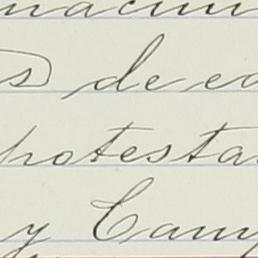 nacim
s) de ed
potesta
y Camp